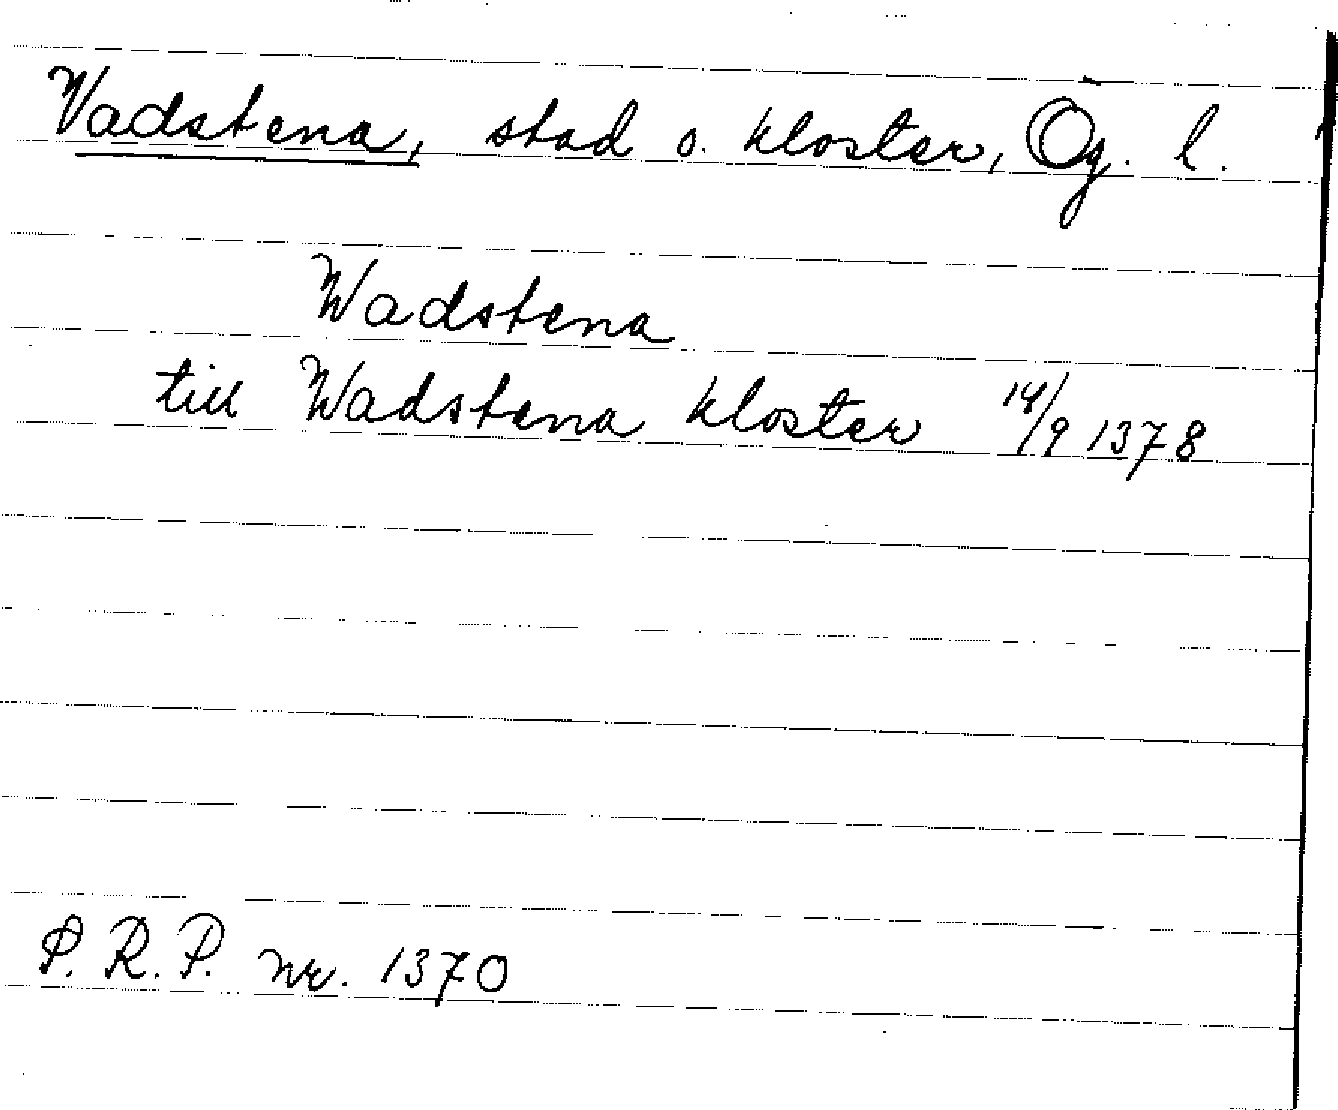 Vadstena, stad o. kloster, Ög. l.
Wadstena
till Wadstena kloster 14/9 1378
P.R.P. nr. 1370